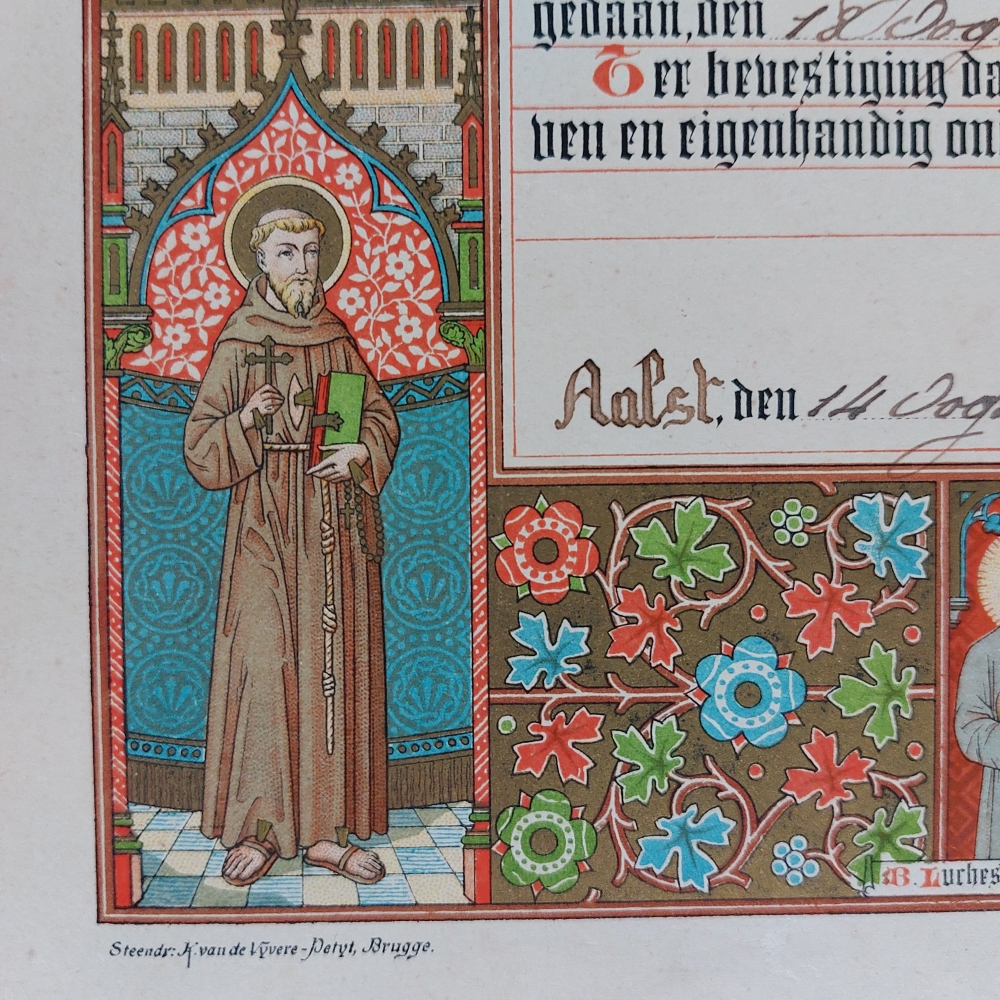 gedaan, den 18 Oog
Ter bevestiging da
ven en eigenhandig on
Aalst, den 14 Oog
B. Luches
Steendr: K. van de Vÿvere-Petyt, Brugge.